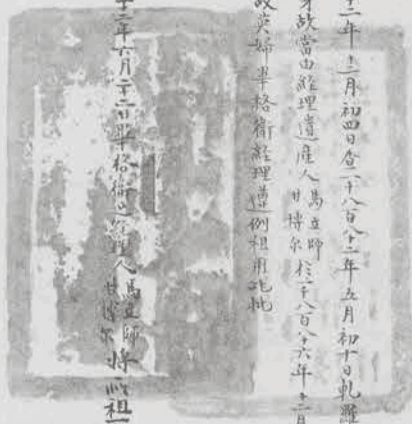 十二年十二月初四日合一千八百八十二年五月初十日軋羅
身故當由經理遺産人馬立師甘博尔於一千八百八十六年十二月
故英婦畢格衛經理遵例租用此批
十二年六月二十二日畢格衛之經理人馬立師甘博尔將所租